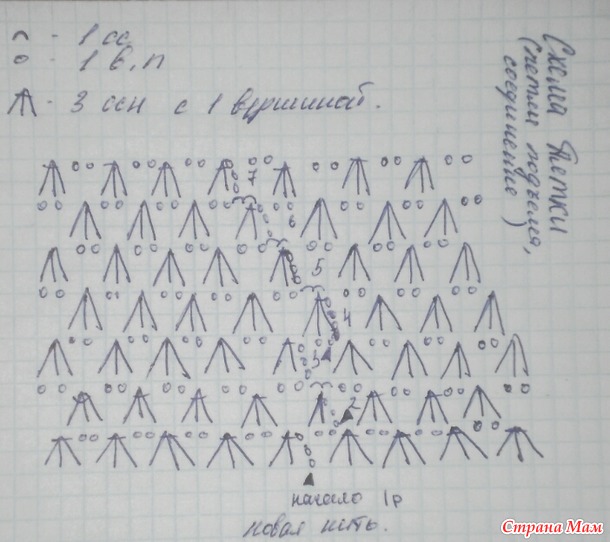 ⌢ - 1 сс
о - 1 в.п
- 3 ссн с 1 вершиной.
Схема Тетки
(петли подъема,
соединение)
7
6
5
4
3
2
начало 1р
новая нить.
Страна Мам